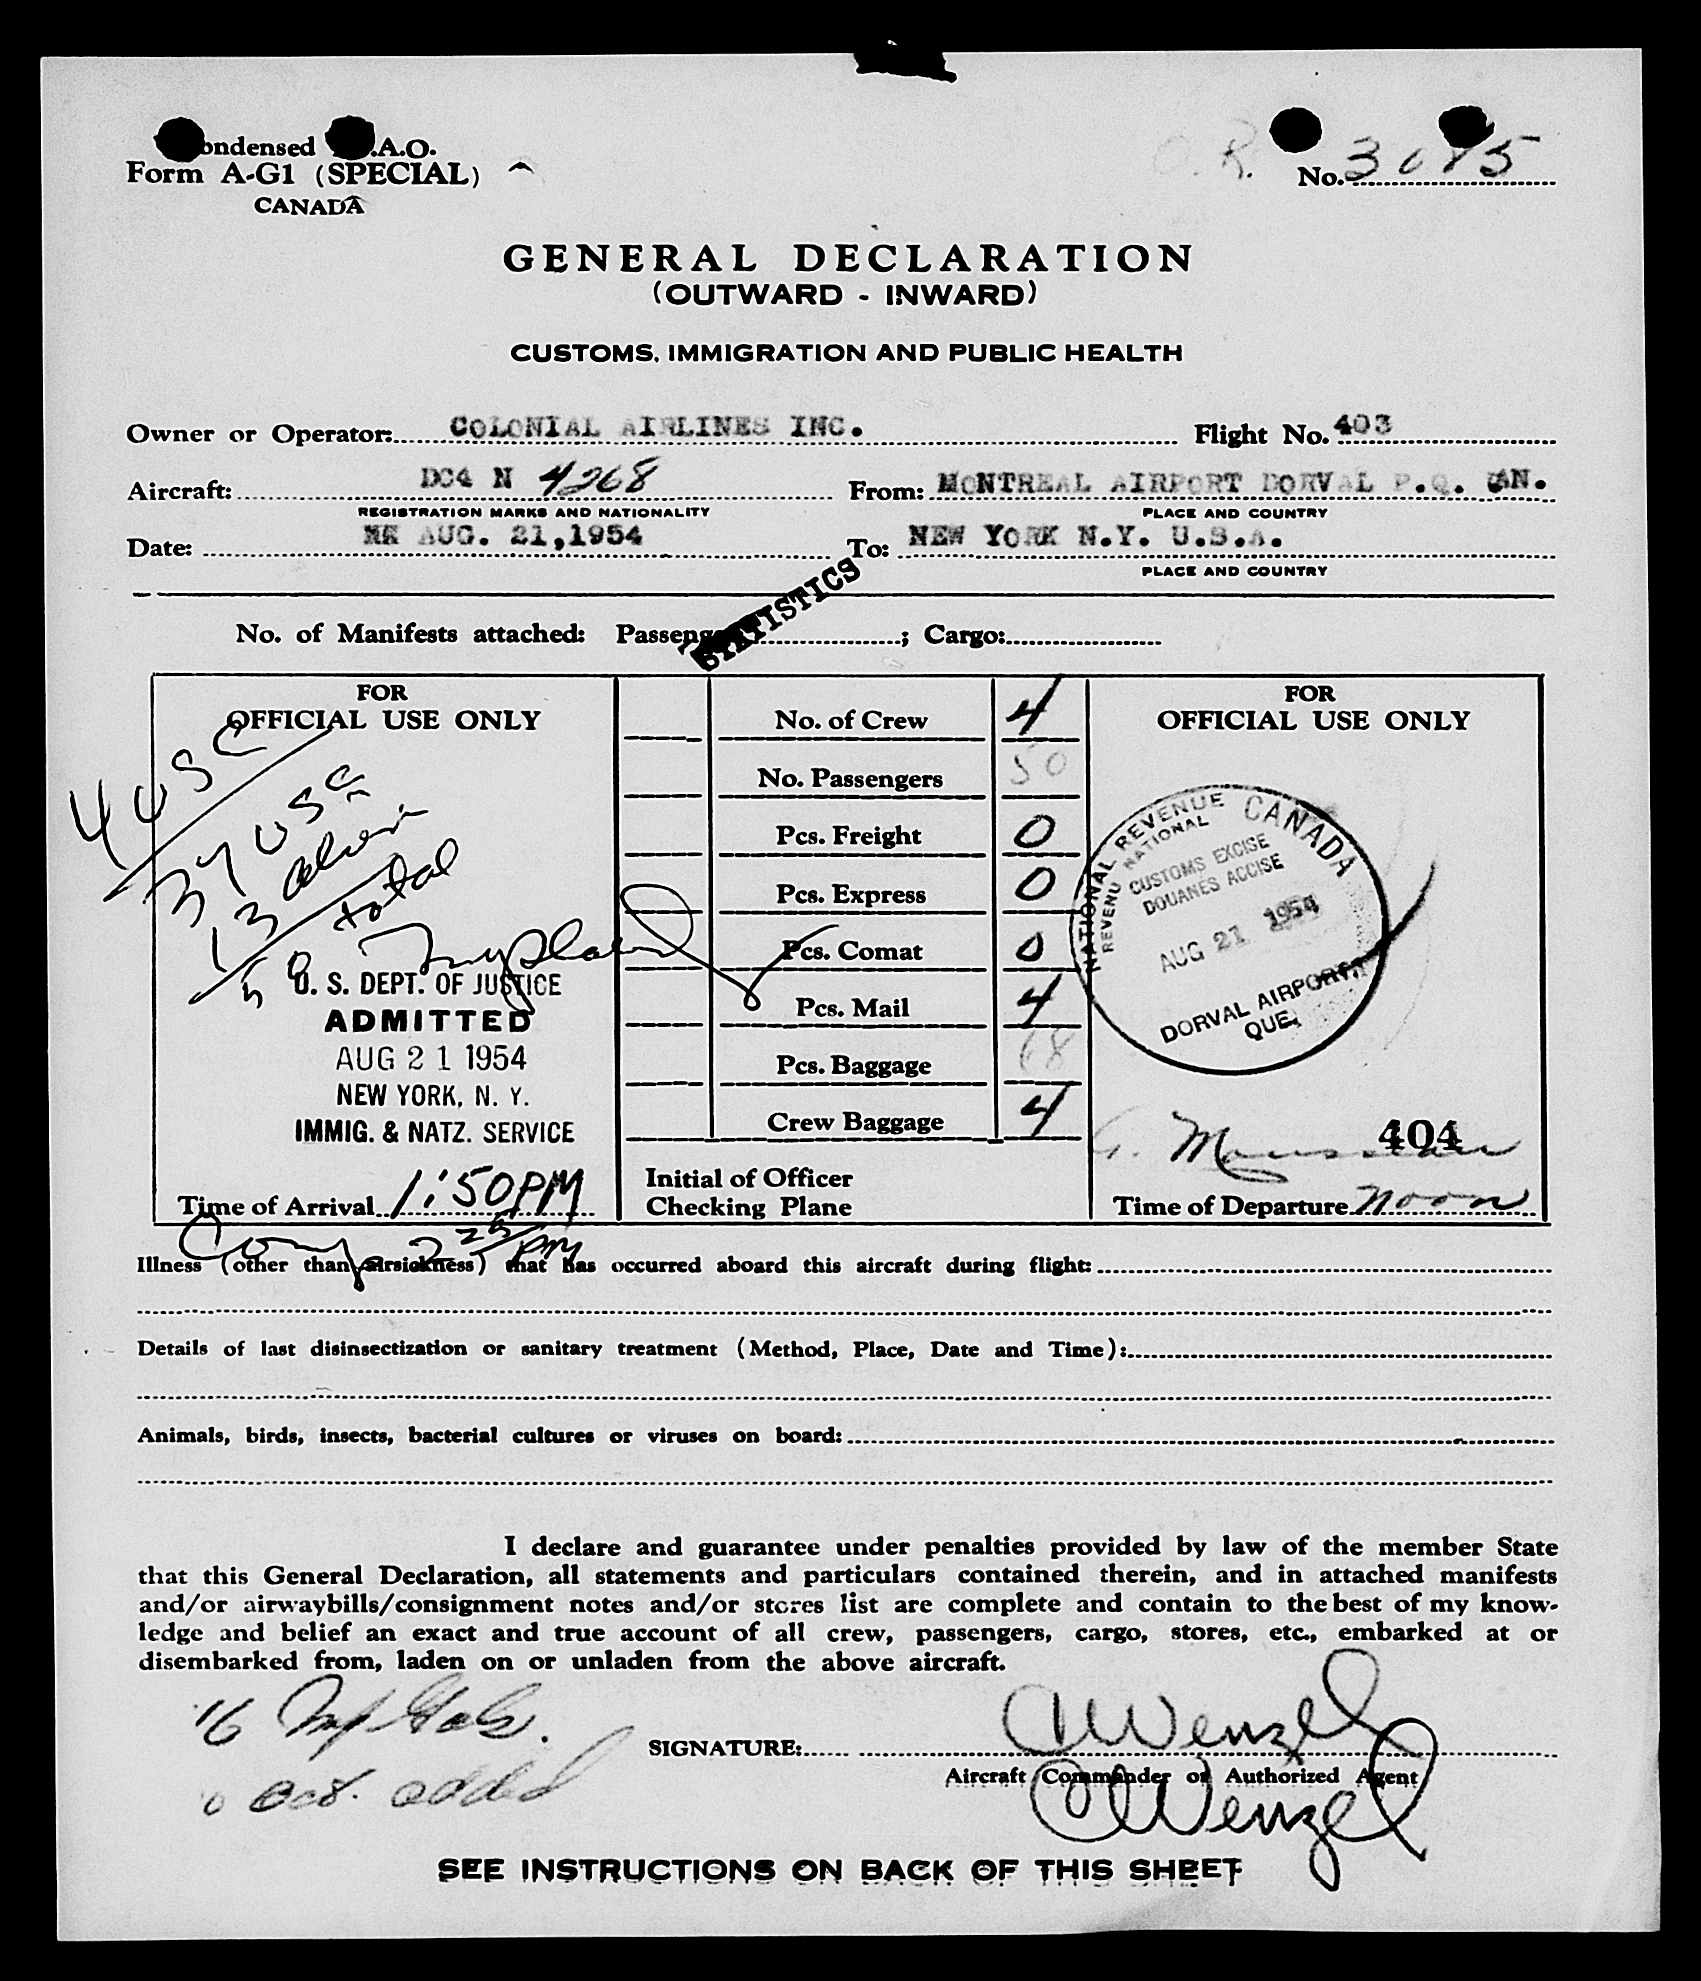 ondensed .A.O.
Form A-G1 (SPECIAL)
CANADA
O. R.
No. 30
GENERAL DECLARATION
(OUTWARD - INWARD)
CUSTOMS, IMMIGRATION AND PUBLIC HEALTH
Owner or Operator: COLONIAL AIRLINES INC. Flight No. 403
Aircraft: DC4 N 4268 From: MONTREAL AIRPORT DORVAL P.Q. CAN.
REGISTRATION MARKS AND NATIONALITY PLACE AND COUNTRY
Date: AUG. 21,1954 To: NEW YORK N.Y. U.S.A.
PLACE AND COUNTRY
STATISTICS
No. of Manifests attached: Passenger ; Cargo:
FOR
OFFICIAL USE ONLY
4 USC
37 USC
13 alien
50 total
U. S. DEPT. OF JUSTICE
ADMITTED
AUG 21 1954
NEW YORK, N. Y.
IMMIG. & NATZ. SERVICE
Time of Arrival 1:50 PM
2 25 PM
No. of Crew 4
No. Passengers 50
Pcs. Freight 0
Pcs. Express 0
Pcs. Comat 0
Pcs. Mail 4
Pcs. Baggage 68
Crew Baggage 4
Initial of Officer
Checking Plane
FOR
OFFICIAL USE ONLY
NATIONAL REVENUE CANADA
REVENU NATIONAL
CUSTOMS EXCISE
DOUANES ACCISE
AUG 21 1954
DORVAL AIRPORT
QUE.
404
Time of Departure Noon
Illness (other than airsickness) that has occurred aboard this aircraft during flight:
Details of last disinsectization or sanitary treatment (Method, Place, Date and Time):
Animals, birds, insects, bacterial cultures or viruses on board:
I declare and guarantee under penalties provided by law of the member State
that this General Declaration, all statements and particulars contained therein, and in attached manifests
and/or airwaybills/consignment notes and/or stores list are complete and contain to the best of my know-
ledge and belief an exact and true account of all crew, passengers, cargo, stores, etc., embarked at or
disembarked from, laden on or unladen from the above aircraft.
16
added
SIGNATURE: Wenzel
Aircraft Commander or Authorized Agent
Wenzel
SEE INSTRUCTIONS ON BACK OF THIS SHEET